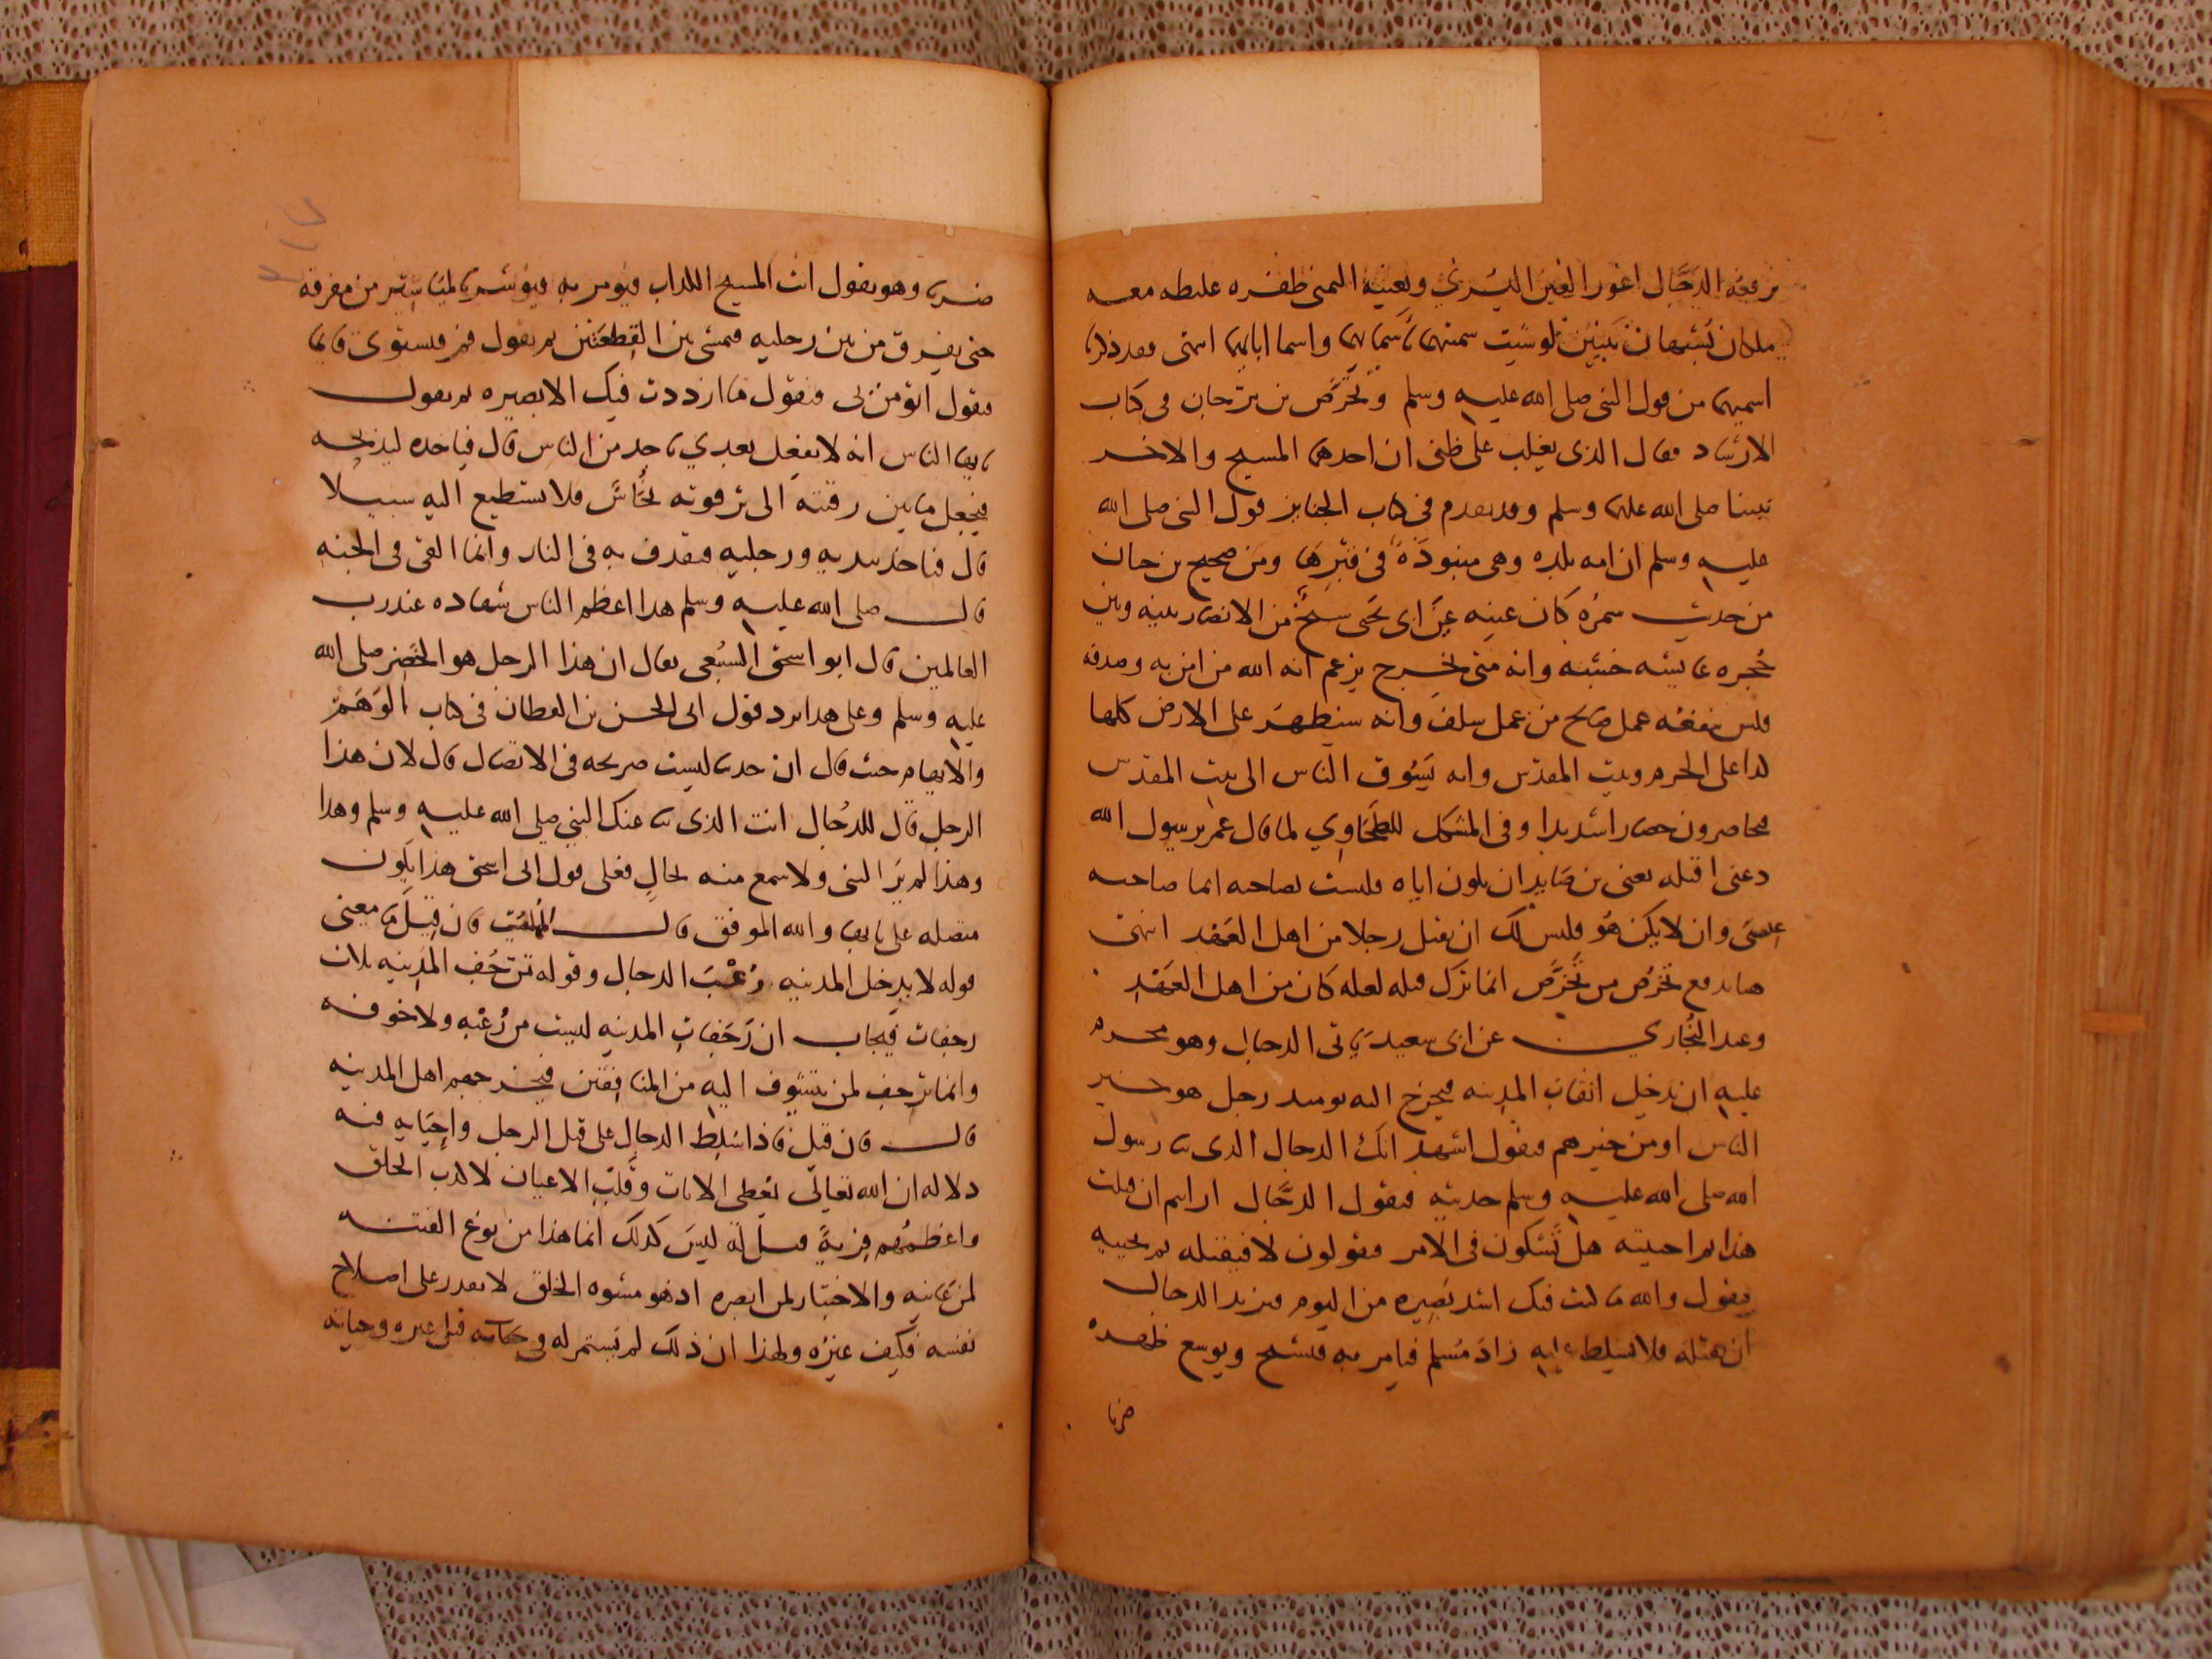 يرفعه الدجال اعور العين اليسرى وبعينه اليمنى ظفره غليظه معه
ملكان يشبهان نبيين لو شيت سميتهما باسمايهما واسما ابايهما انتهى فقد ذكرنا
اسميهما من قول النبي صلى الله عليه وسلم وتخرص بن برجان في كتاب
الارشاد فقال الذي يغلب على ظني ان احدهما المسيح والاخر
نبينا صلى الله عليهما وسلم وقد تقدم في كتاب الجنايز قول النبي صلى الله
عليه وسلم ان امه تلده وهي منبوذة في قبرها ومن صحيح بن حبان
من حديث سمرة كان عينه عين ابي تحيى شيخ من الانصار بينه وبين
حجره عايشه خشبه وانه متى يخرج يزعم انه الله من امن به وصدقه
فليس ينفعه عمل صالح من عمل سلف وانه سيظهر على الارض كلها
الا على الحرم وبيت المقدس وانه يسوق الناس الى بيت المقدس
فيحاصرون حصارا شديدا وفي المشكل للطحاوي لما قال عمر يرسول الله
دعني اقتله يعني بن صايد ان يكون اياه فلست بصاحبه انما صاحبه
عيسى وان لا يكن هو فليس لك ان تقتل رجلا من اهل العهد انتهى
هذا يدفع تخرص من تخرص انما ترك قتله لعله كان من اهل العهد
وعند البخاري عن ابي سعيد ياتي الدجال وهو محرم
عليه ان يدخل انقاب المدينه فيخرج اليه يوميد رجل هو خير
الناس او من خيرهم فيقول اشهد انك الدجال الذي ثنا رسول
الله صلى الله عليه وسلم حديثه فيقول الدجال ارايتم ان قتلت
هذا ثم احييته هل تشكون في الامر فيقولون لا فيقتله ثم يحييه
فيقول والله ما كنت فيك اشد بصيره من اليوم فيريد الدجال
ان يقتله فلا يسلط عليه زاد مسلم فيامر به فيشبح ويوسع ظهره
ضربا
ضربا وهو يقول انت المسيح الكذاب فيومر به فيوشر بالميشار من مفرقه
حتى يفرق من بين رجليه فيمشي بين القطعتين ثم يقول قم فيستوي قايما
فيقول اتومن بي فيقول ما ازددت فيك الا بصيره ثم يقول
يايها الناس انه لا يفعل بعدي باحد من الناس قال فياخده ليذبحه
فيجعل ما بين رقبته الى ترقوته نحاس فلا يستطيع اليه سبيلا
قال فياخذ بيديه ورجليه فيقذف به في النار وانما القي في الجنه
قال صلى الله عليه وسلم هذا اعظم الناس شهاده عند رب
العالمين قال ابو اسحق السبيعي يقال ان هذا الرجل هو الخضر صلى الله
عليه وسلم وعلى هذا يرد قول ابي الحسن بن القطان في كتاب الوهم
والايهام حيث قال ان حدثنا ليست صريحه في الاتصال قال لان هذا
الرجل قال للدجال انت الذي ثنا عنك النبي صلى الله عليه وسلم وهذا
وهذا لم ير النبي ولا سمع منه بحال فعلى قول ابي اسحق هذا يكون
متصله على بابها والله الموفق قال المهلب فان قيل ما معنى
قوله لا يدخل المدينه رعب الدجال وقوله ترجف المدينه ثلاث
رجفات فيجاب ان رجفات المدينه ليست من رعبه ولا خوفه
وانما ترجف لمن يتشوف اليه من المنافقين فيخرجهم اهل المدينه
قال فان قيل فاذا سلط الدجال على قتل الرجل واحيايه فيه
دلاله ان الله تعالى يعطي الايات وقلب الاعيان لاكذب الخلق
واعظمهم فرية قيل له ليس كذلك انما هذا من نوع الفتنه
لمن عاينه والاختبار لمن ابصره اذ هو مشوه الخلق لا يقدر على اصلاح
نفسه فكيف غيره ولهذا ان ذلك لم يستمر له في حياته قتل غيره وحياته